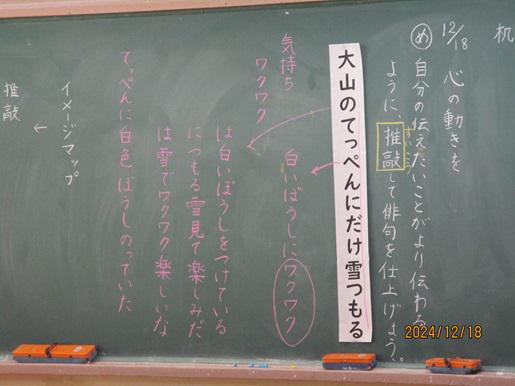 机
12/18
心の動きを
め
自分の伝えたいことがより伝わる
ように、推敲して俳句を仕上げよう。
すいこう
大山のてっぺんにだけ雪つもる
気持ち
ワクワク
白いぼうしにワクワク
は白いぼうしをつけている
につもる雪見て楽しみだ
は雪でワクワク楽しいな
てっぺんに白色ぼうしのっていた
イメージマップ
←
推敲
2024/12/18